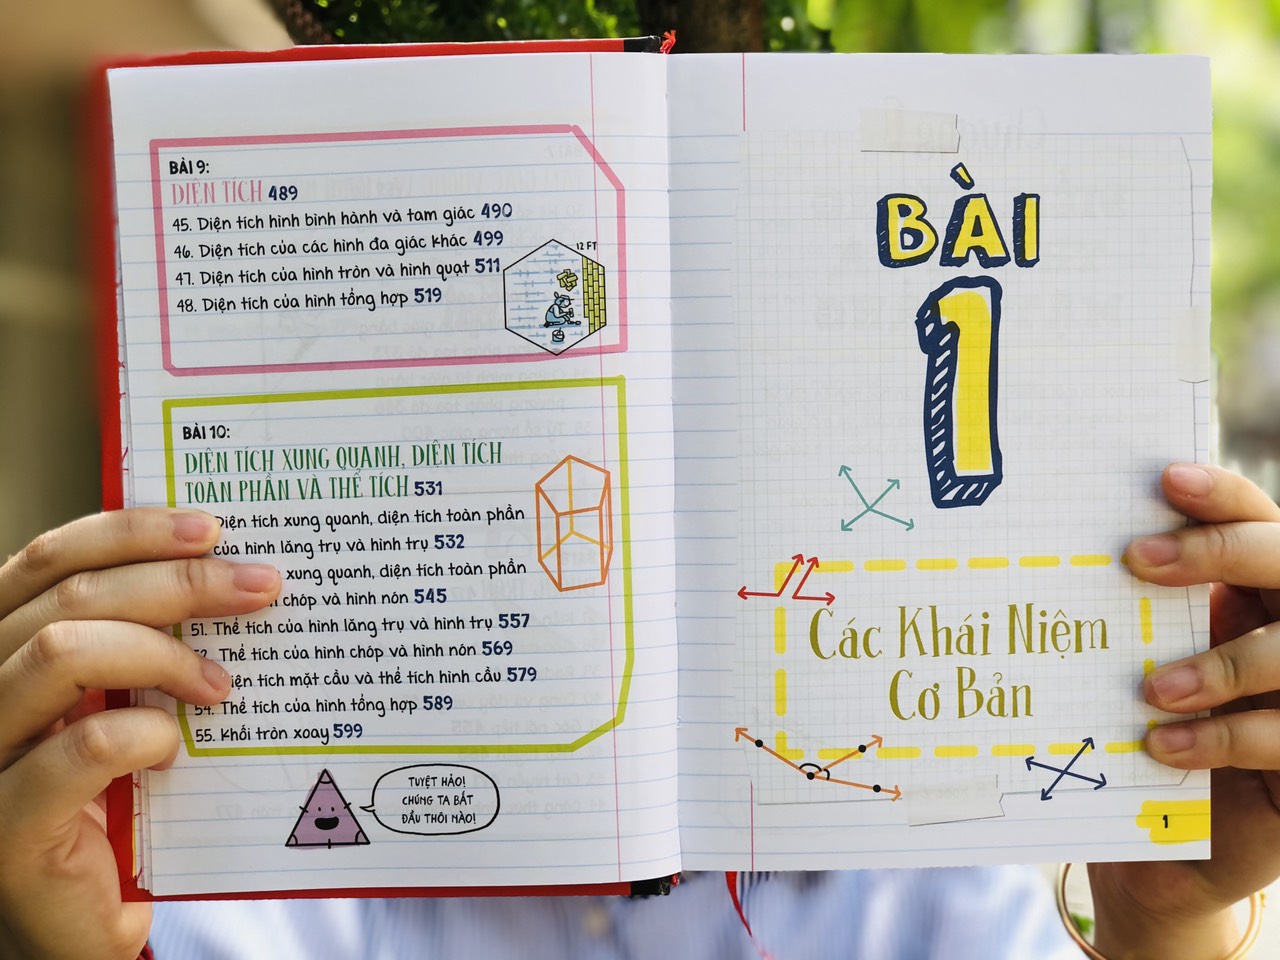 BÀI 9:
DIỆN TÍCH 489
45. Diện tích hình bình hành và tam giác 490
46. Diện tích của các hình đa giác khác 499
47. Diện tích của hình tròn và hình quạt 511
48. Diện tích của hình tổng hợp 519
12 FT
BÀI 10:
DIỆN TÍCH XUNG QUANH, DIỆN TÍCH
TOÀN PHẦN VÀ THỂ TÍCH 531
Diện tích xung quanh, diện tích toàn phần
của hình lăng trụ và hình trụ 532
xung quanh, diện tích toàn phần
chóp và hình nón 545
51. Thể tích của hình lăng trụ và hình trụ 557
Thể tích của hình chóp và hình nón 569
tích mặt cầu và thể tích hình cầu 579
54. Thể tích của hình tổng hợp 589
55. Khối tròn xoay 599
TUYỆT HẢO!
CHÚNG TA BẮT
ĐẦU THÔI NÀO!
BÀI
1
Các Khái Niệm
Cơ Bản
1